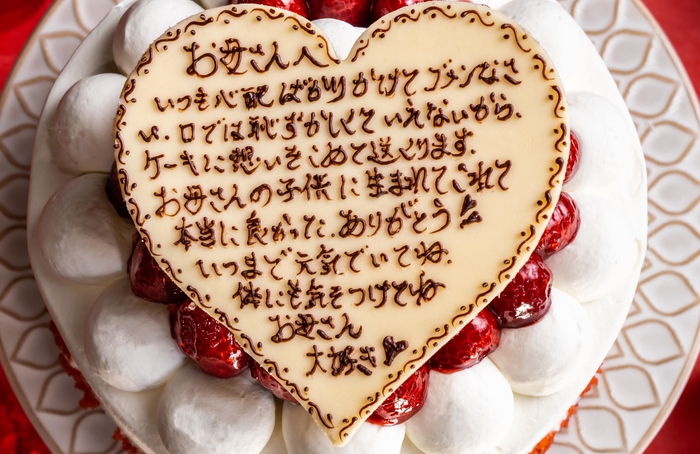 お母さんへ
いつも心配ばかりかけてゴメンなさ
い。口では恥ずかしくていえないから、
ケーキに想いをこめて送くります。
お母さんの子供に生まれてこれて
本当に良かった。ありがとう
いつまで元気でいてね。
体にも気をつけてね
お母さん
大好き